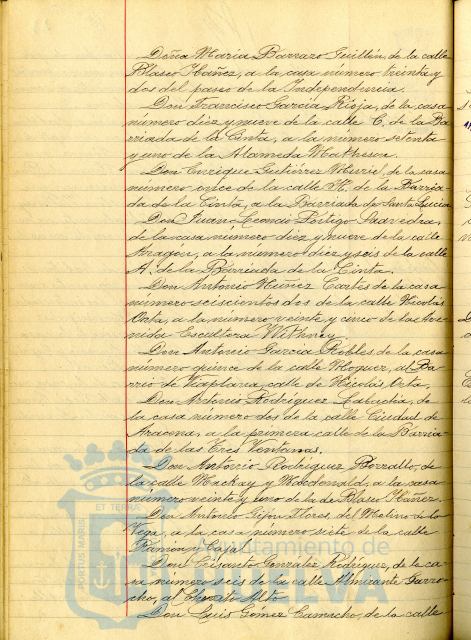 Doña María Barrazo Guillén, de la calle
Blasco Ibáñez, a la casa número treinta y
dos del paseo de la Independencia.
Don Francisco García Rioja, de la casa
número diez y nueve de la calle C, de la Ba
rriada de la Cinta, a la número setenta
y uno de la Alameda Mathesen.
Don Enrique Gutiérrez, de la casa
número once de la calle H. de la Barria-
da de la Cinta, a la Barriada de Santa Lucía
Don Juan Leoncio Pórtigo Saavedra,
de la casa número diez y nueve de la calle
Aragón, a la número diez y seis de la calle
A, de la Barriada de la Cinta.
Don Antonio Núñez Cortés de la casa
número seiscientos dos de la calle Nicolás
Orta, a la número veinte y cinco de la Ave
nida Escultora Withney
Don Antonio García Robles de la casa
número quince de la calle Moguer, al Ba
rrio de Viaplana, calle de Nicolás Orta,
Don Antonio Rodríguez, de
la casa número dos de la calle Ciudad de
Aracena, a la primera calle de la Barria-
da de las Tres Ventanas.
Don Antonio Rodríguez Borralto, de
la calle Mackay y Macdonald, a la casa
número veinte y uno de la de Blasco Ibáñez.
Don Antonio Gijón Flores, del Molino de la
Vega, a la casa número siete de la calle
Ramón y Cajal
Don Crisanto González Rodríguez, de la ca
sa número seis de la calle Almirante Garro-
cho, al Chorrito Alto
Don Luis Gómez Camacho, de la calle
PORTUS MARIS ET TERRAE
Ayuntamiento de
HUELVA